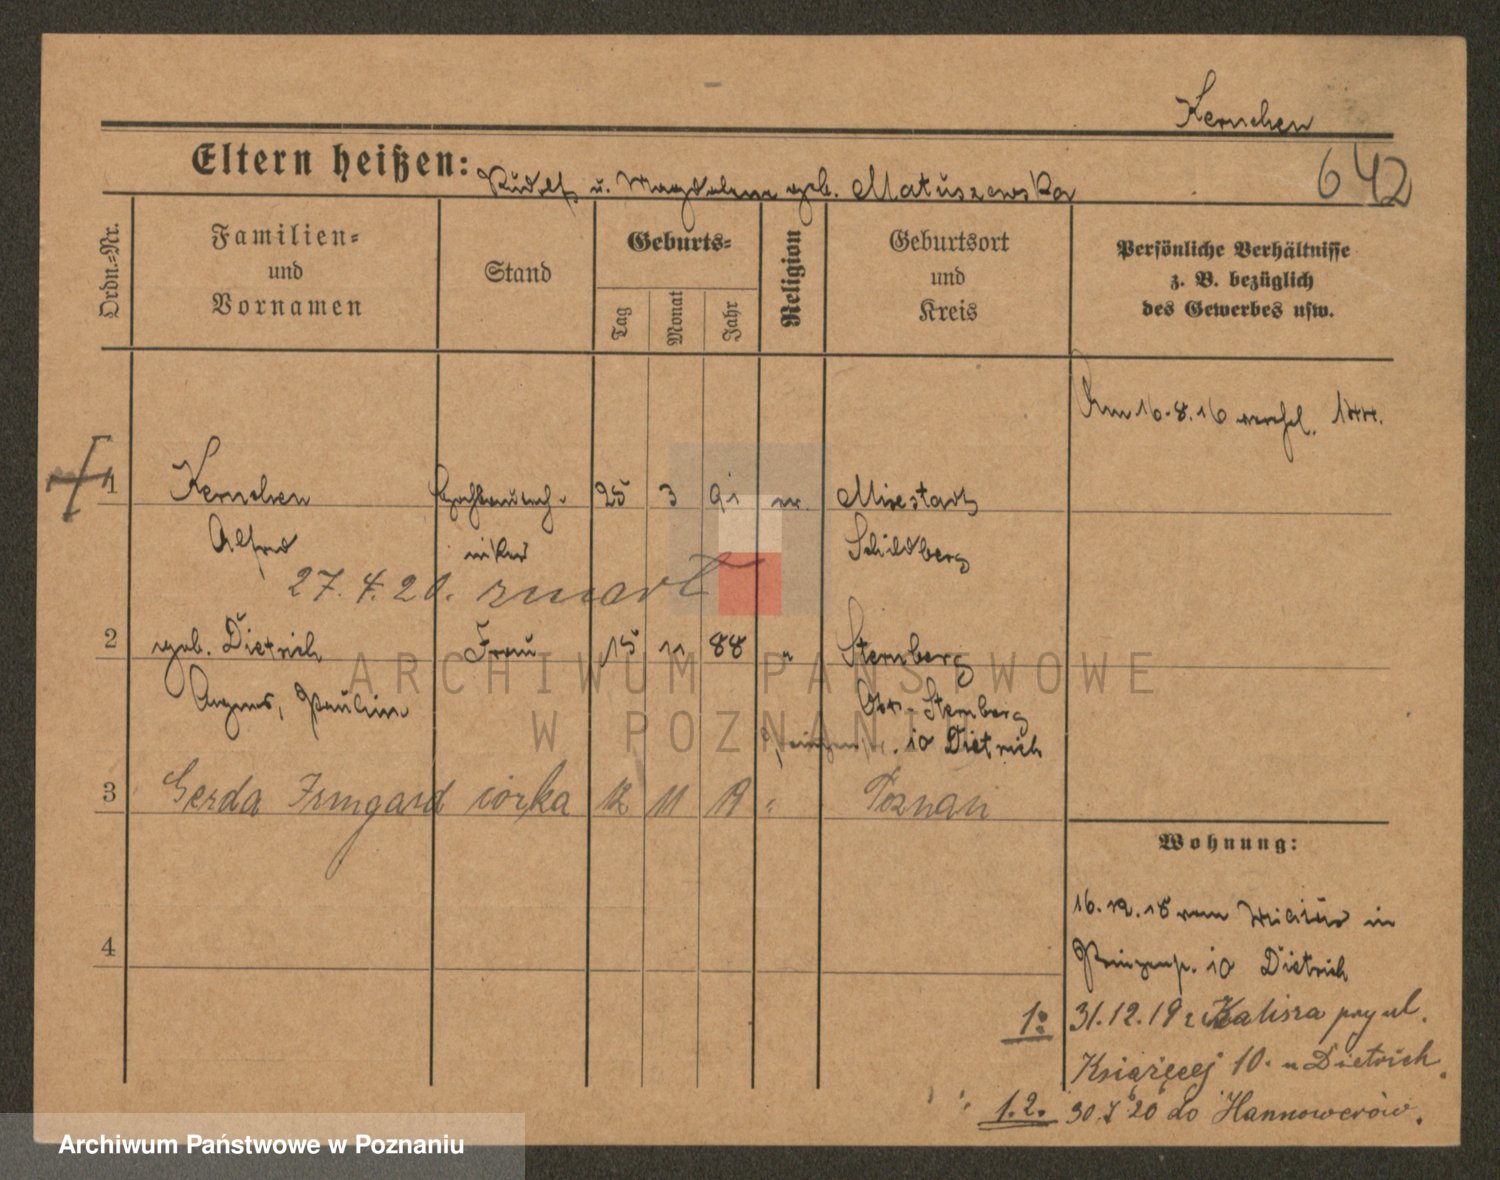 Kernchen
642
Eltern heißen: Rudolf u. Magdalene geb. Matuszewska
Ordn.-Nr.
Familien-
und
Vornamen
Stand
Geburts-
Tag
Monat
Jahr
Religion
Geburtsort
und
Kreis
Persönliche Verhältnisse
z. B. bezüglich
des Gewerbes usw.
Am 16.8.16 verehel.
1 Kernchen 25 3 91 Mixstadt
Alfred niker Schildberg
27.4.20. zmarł
2 geb. Dietrich Frau 15 11 88 " Sternberg
Agnes, Pauline Ost-Sternberg
10 Dietrich
3 Gerda Irmgard córka 12 11 19 " Poznań
4
Wohnung:
16.12.18 vom Militär in
Prinzenstr. 10 Dietrich
1: 31.12.19 z Kalisza przy ul.
Książęcej 10. u Dietrich.
1.2. 30.7 20 do Hannowerów.
ARCHIWUM PAŃSTWOWE
W POZNANIU
Archiwum Państwowe w Poznaniu